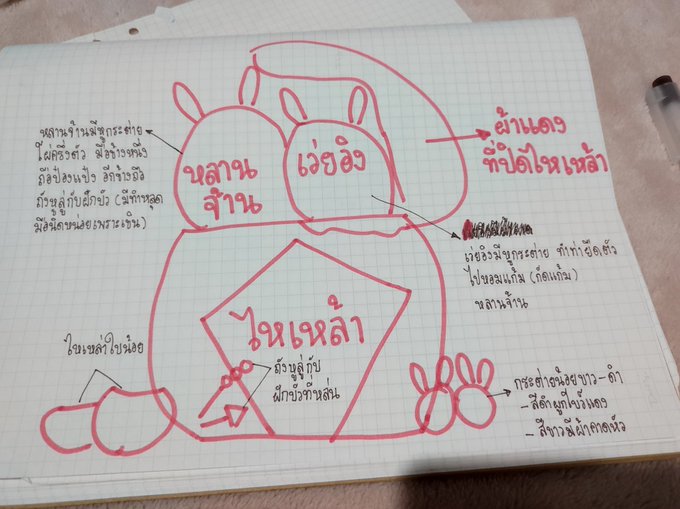 หลานจ้านมีหูกระต่าย
โผล่ครึ่งตัว มือข้างหนึ่ง
ถือป๋องแป๋ง อีกข้างถือ
ถังหูลู่กับฝักบัว (มีทำหลุด
มือนิดหน่อยเพราะเขิน)
หลาน
จ้าน
เว่ยอิง
ผ้าแดง
ที่ปิดไหเหล้า
เว่ยอิงมีหูกระต่าย ทำท่ายืดตัว
ไปหอมแก้ม (กัดแก้ม)
หลานจ้าน
ไหเหล้า
ไหเหล้าใบน้อย
ถังหูลู่กับ
ฝักบัวที่หล่น
กระต่ายน้อยขาว-ดำ
-สีดำผูกโบว์แดง
-สีขาวมีผ้าคาดหัว